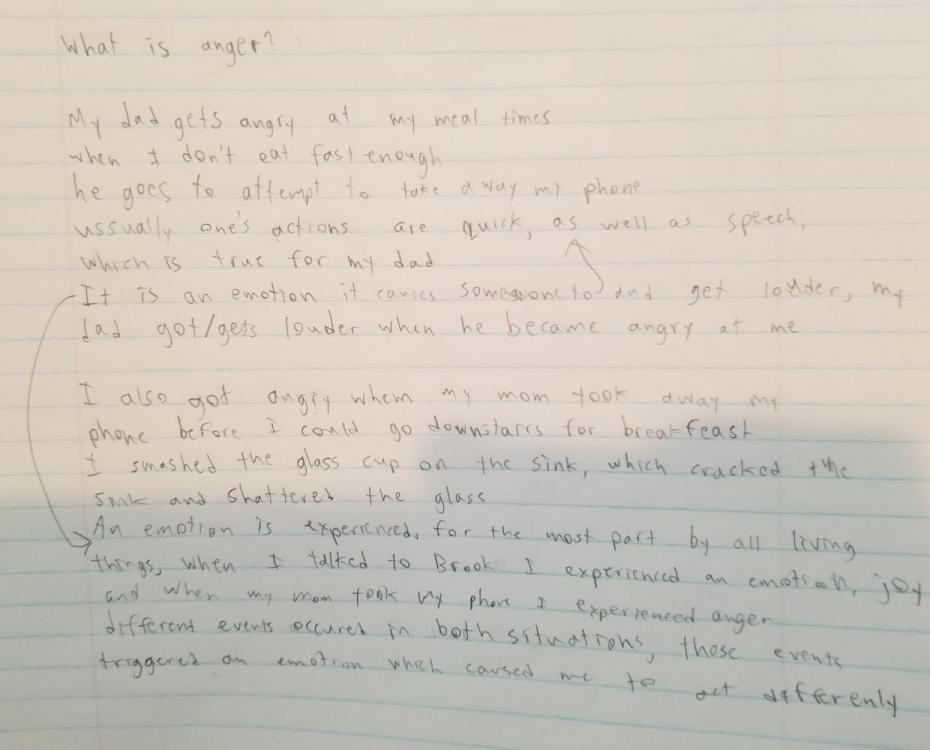 What is anger?
My dad gets angry at my meal times
when I don't eat fast enough
he goes to attempt to take away my phone
ussually one's actions are quick, as well as speech,
which is true for my dad
It is an emotion it causes someone to and get louder, my
dad got/gets louder when he became angry at me
I also got angry when my mom took away my
phone before I could go downstairs for breakfeast
I smashed the glass cup on the sink, which cracked the
sink and shattered the glass
An emotion is experienced, for the most part by all living
things, when I talked to Brook I experienced an emotion, joy
and when my mom took my phone I experienced anger
different events occured in both situations, those events
triggered an emotion which caused me to act differenly